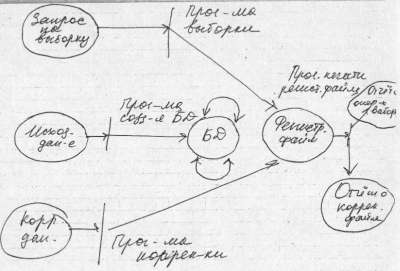 Запрос
на
выборку
Прог-ма
выборки
Прог. печати
регист. файла
Отчёт
Исход.
дан-е
Прог-ма
созд-я БД
БД
Регистр.
файл
Отчёт о
коррек.
файл
Корр.
дан.
Прог-ма
коррек-ки